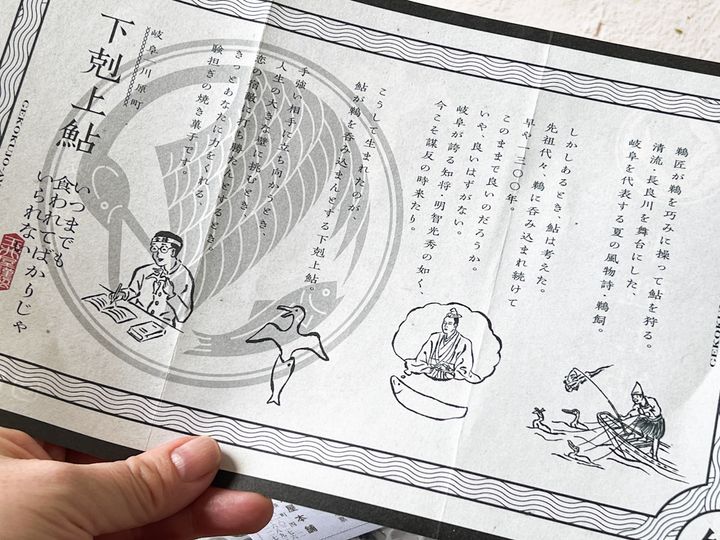 鵜匠が鵜を巧みに操って鮎を狩る。
清流・長良川を舞台にした、
岐阜を代表する夏の風物詩・鵜飼。
しかしあるとき、鮎は考えた。
先祖代々、鵜に呑み込まれ続けて
早や一三〇〇年。
このままで良いのだろうか。
いや、良いはずがない。
岐阜が誇る知将・明智光秀の如く、
今こそ謀反の時来たり。
こうして生まれたのが、
鮎が鵜を呑み込まんとする下剋上鮎。
手強い相手に立ち向かうとき、
人生の大きな壁に挑むとき、
恋の宿敵に打ち勝たんとするとき、
きっとあなたに力をくれる、
験担ぎの焼き菓子です。
岐阜 川原町
下剋上鮎
いつまでも
食われてばかりじゃ
いられない
GEKOKUJO
屋本舗